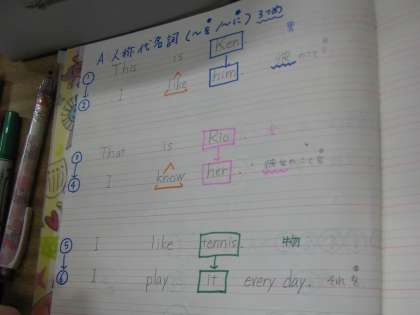 A 人称代名詞 (〜を 〜に) 3つめ
① This is Ken. を
② I like him. 彼のことを
③ That is Ria. を
④ I know her. 彼女のことを
⑤ I like tennis. 物
⑥ I play it every day. それを